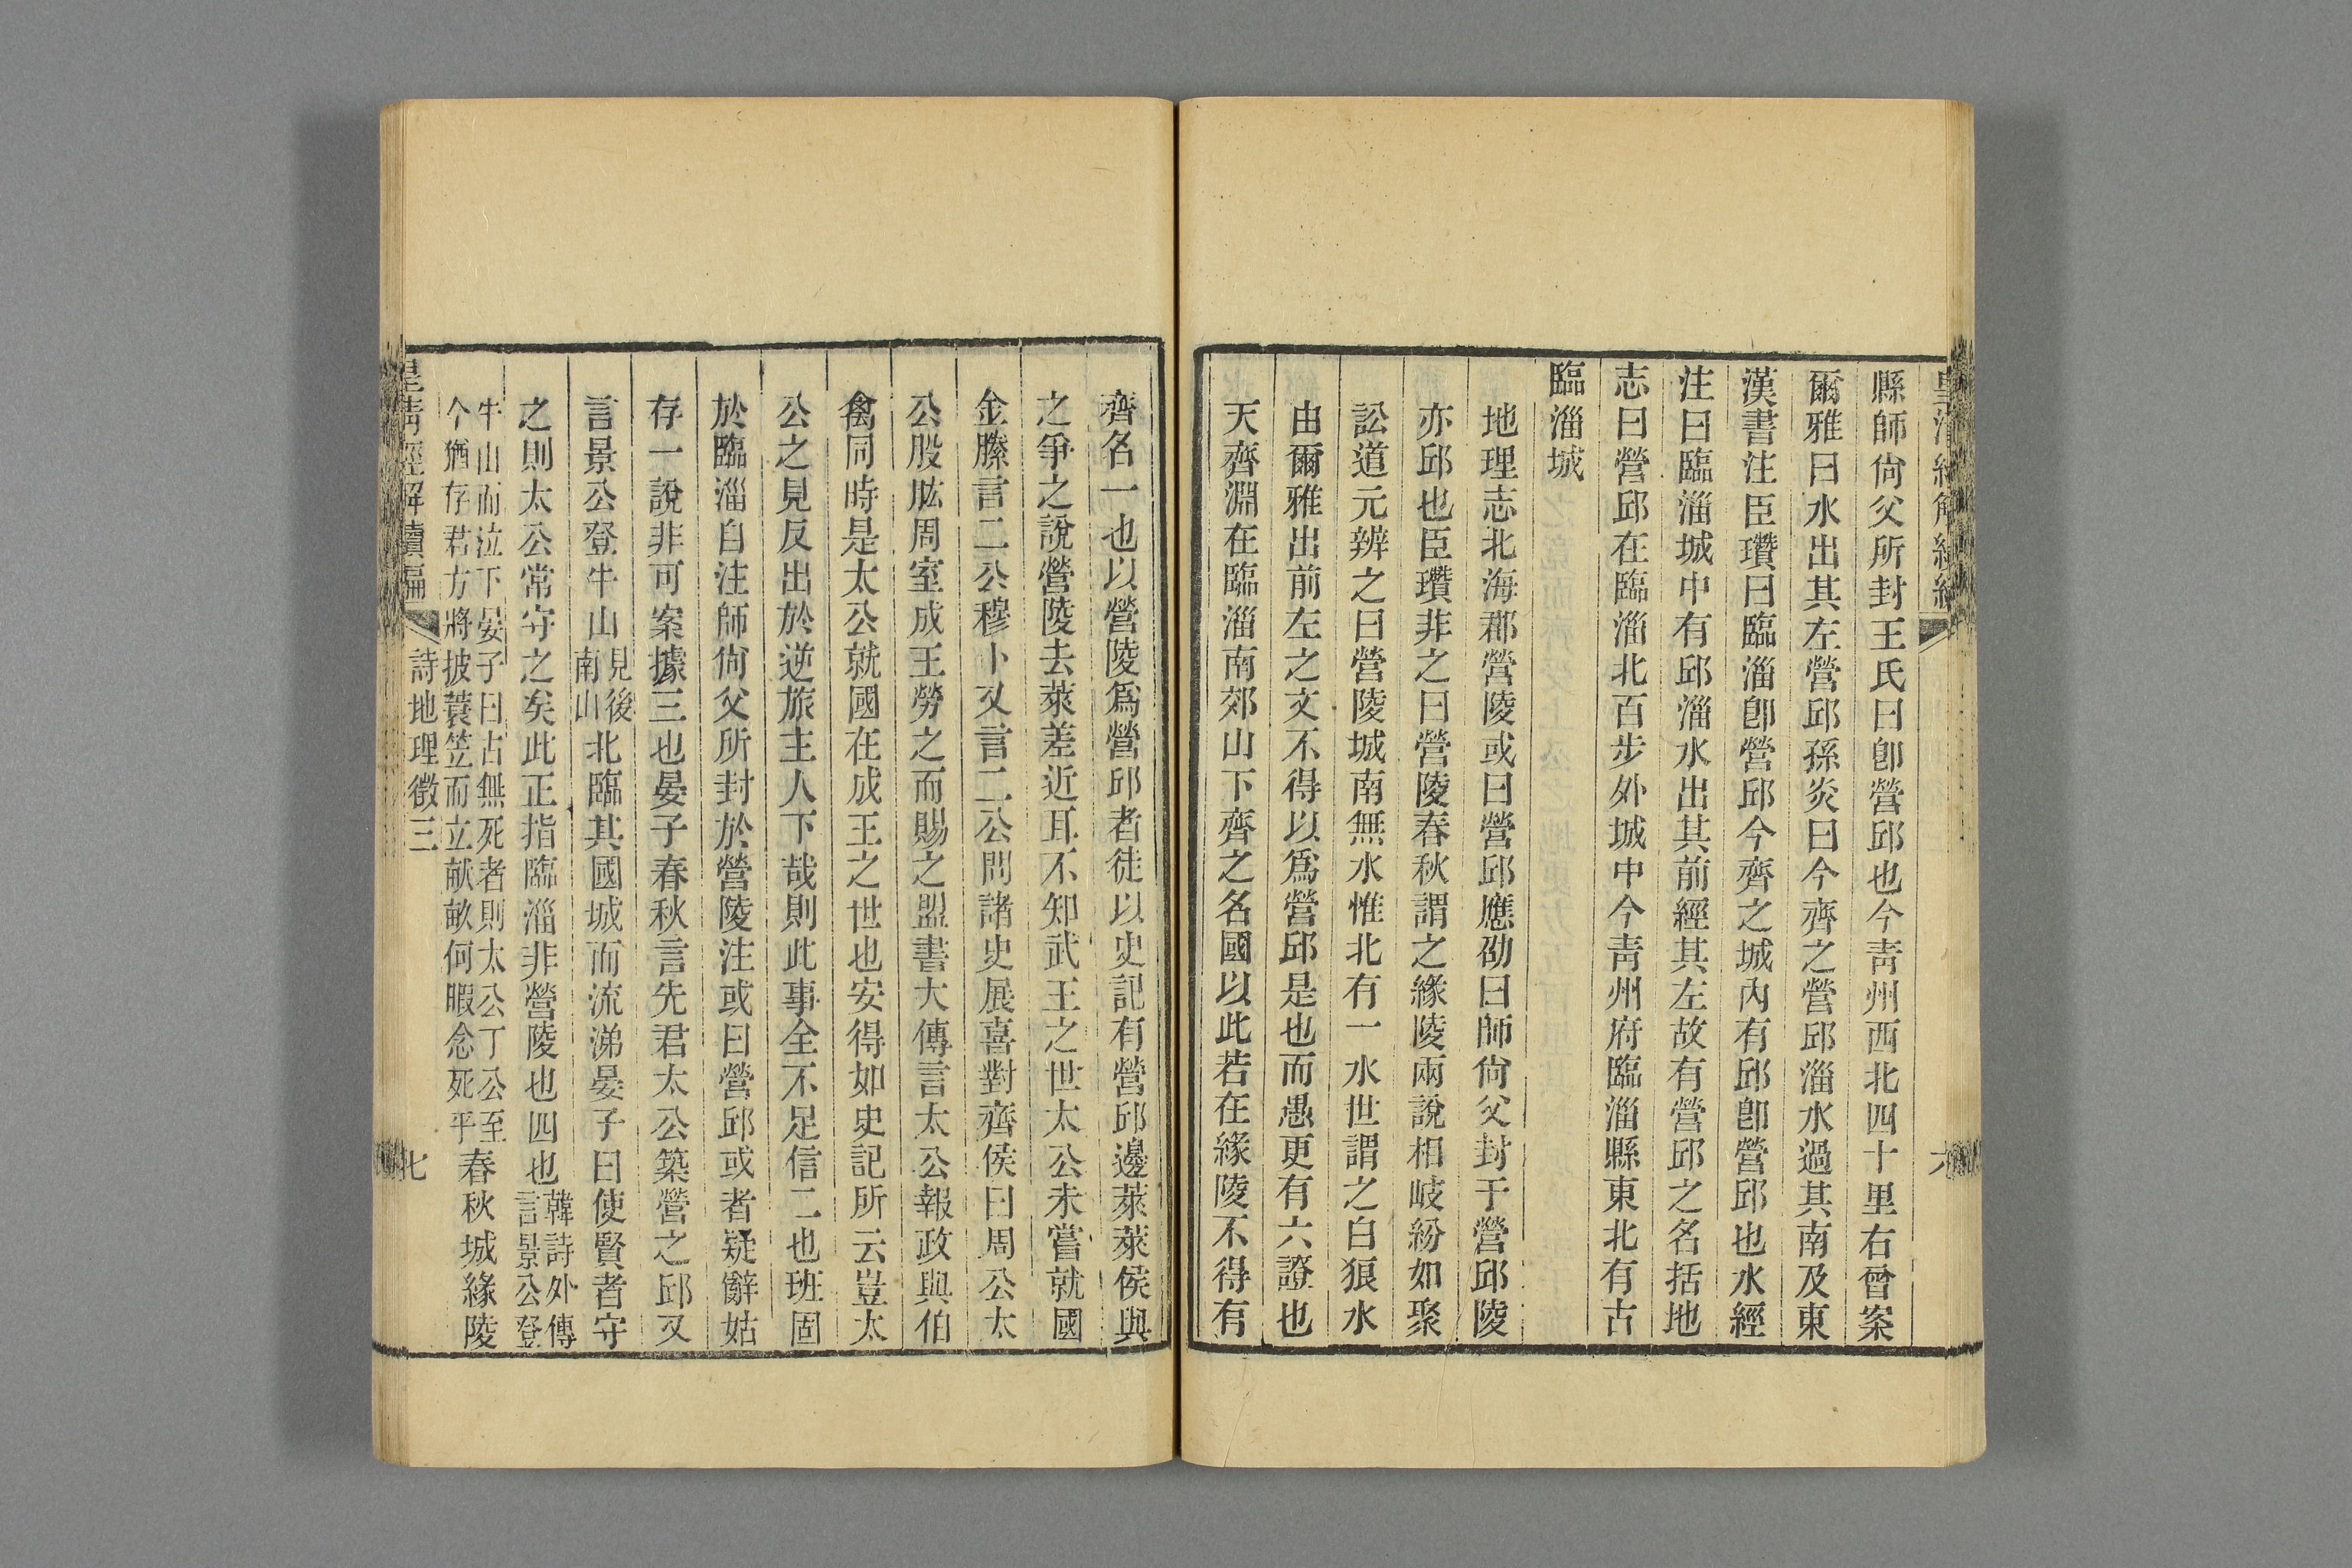 縣師尙父所封王氏曰卽營邱也今靑州西北四十里右曾案
爾雅曰水出其左營邱孫炎曰今齊之營邱淄水過其南及東
漢書注臣瓚曰臨淄卽營邱今齊之城內有邱卽營邱也水經
注曰臨淄城中有邱淄水出其前經其左故有營邱之名括地
志曰營邱在臨淄北百步外城中今靑州府臨淄縣東北有古
臨淄城
地理志北海郡營陵或曰營邱應劭曰師尙父封于營邱陵
亦邱也臣瓚非之曰營陵春秋謂之緣陵兩說相岐紛如聚
訟道元辨之曰營陵城南無水惟北有一水世謂之白狼水
由爾雅出前左之文不得以爲營邱是也而愚更有六證也
天齊淵在臨淄南郊山下齊之名國以此若在緣陵不得有
齊名一也以營陵爲營邱者徒以史記有營邱邊萊萊侯與
之爭之說營陵去萊差近耳不知武王之世太公未嘗就國
金縢言二公穆卜又言二公問諸史展喜對齊侯曰周公太
公股肱周室成王勞之而賜之盟書大傳言太公報政與伯
禽同時是太公就國在成王之世也安得如史記所云豈太
公之見反出於逆旅主人下哉則此事全不足信二也班固
於臨淄自注師尙父所封於營陵注或曰營邱或者疑辭姑
存一說非可案據三也晏子春秋言先君太公築營之邱又
言景公登牛山見後南山北臨其國城而流涕晏子曰使賢者守
之則太公常守之矣此正指臨淄非營陵也四也韓詩外傳言景公登
牛山而泣下晏子曰古無死者則太公丁公至今猶存君方將披蓑笠而立畎畝何暇念死乎春秋城緣陵
皇淸經解續編
詩地理徵三
七